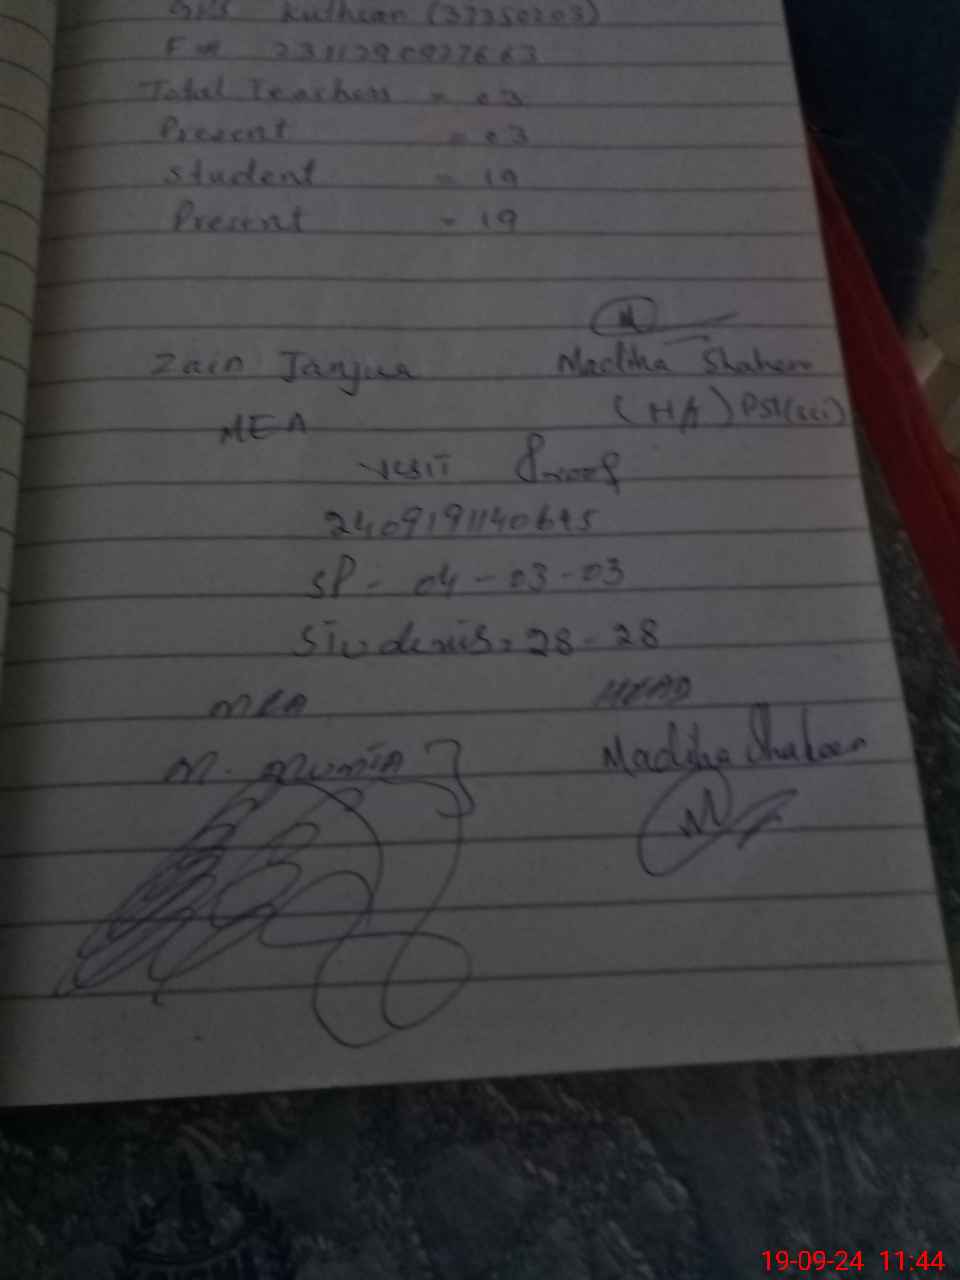 Kuthian (37350203)
F M 2311290927663
Total Teachers = 03
Present = 03
Student = 19
Present = 19
Zain Janjua Madiha Shaheen
MEA (H/A) PST(sci)
Visit Proof
2409191140645
SP - 04 - 03 - 03
Students = 28 - 28
MEA HEAD
M. Madiha Shaheen
19-09-24 11:44